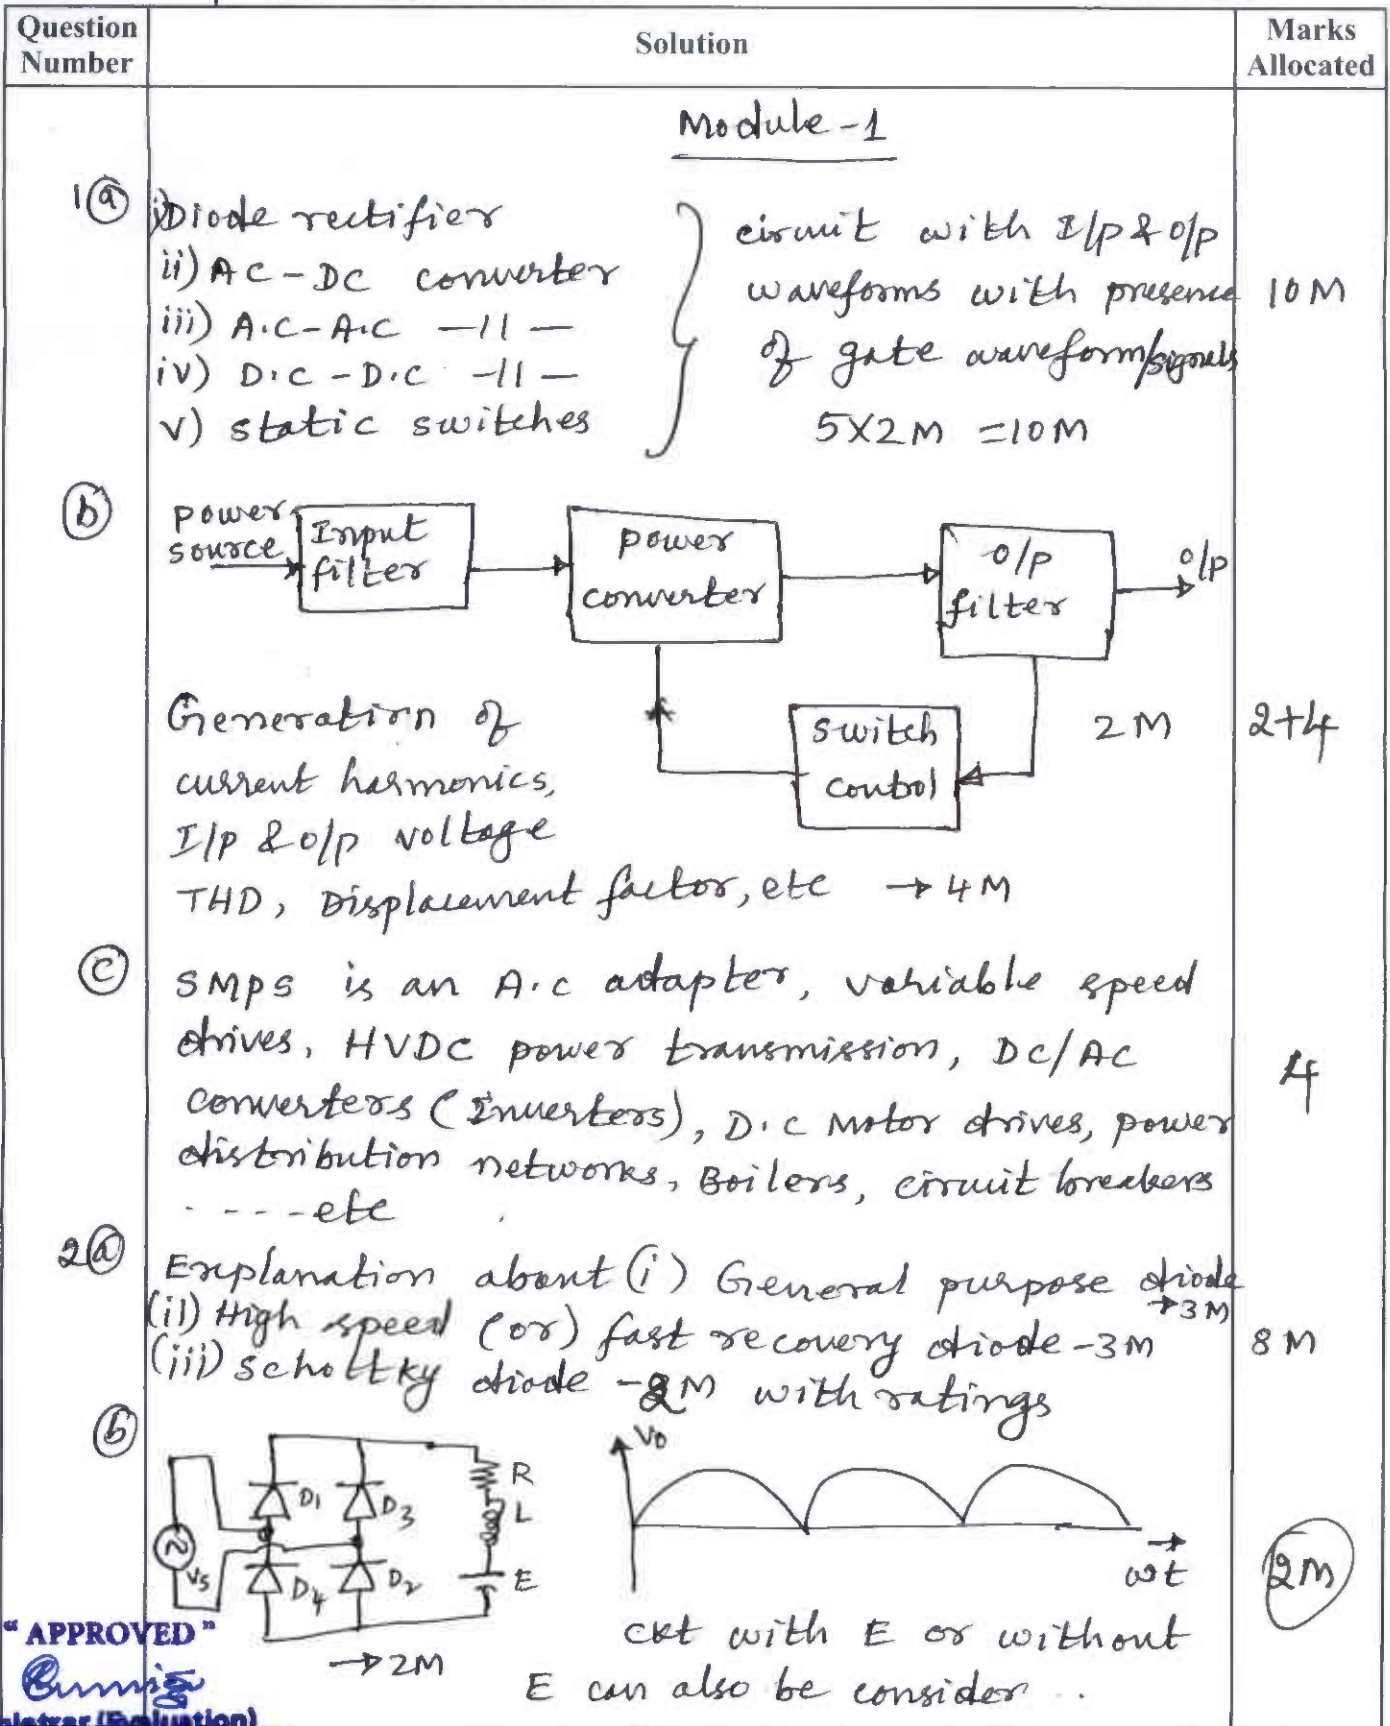 Question Number
Solution
Marks Allocated
Module-1
1(a) i) Diode rectifier
ii) AC-DC converter
iii) A.C-A.C -11-
iv) D.C-D.C -11-
v) static switches
circuit with I/p & o/p
waveforms with presence
of gate waveform/signals
5X2M =10M
10M
(b)
power source
Input filter
power converter
o/p filter
o/p
switch control
2M
2+4
Generation of
current harmonics,
I/p & o/p voltage
THD, Displacement factor, etc → 4M
(c) SMPS is an A.c adapter, variable speed
drives, HVDC power transmission, DC/AC
converters (Inverters), D.C Motor drives, power
distribution networks, Boilers, circuit breakers
----etc
4
2(a) Explanation about (i) General purpose diode
→3M
(ii) High speed (or) fast recovery diode-3M
(iii) Schottky diode -2M with ratings
8M
(b)
Vs
D1
D3
D4
D2
R
L
E
→2M
Vo
ωt
2M
ckt with E or without
E can also be consider..
"APPROVED"
Registrar (Evaluation)